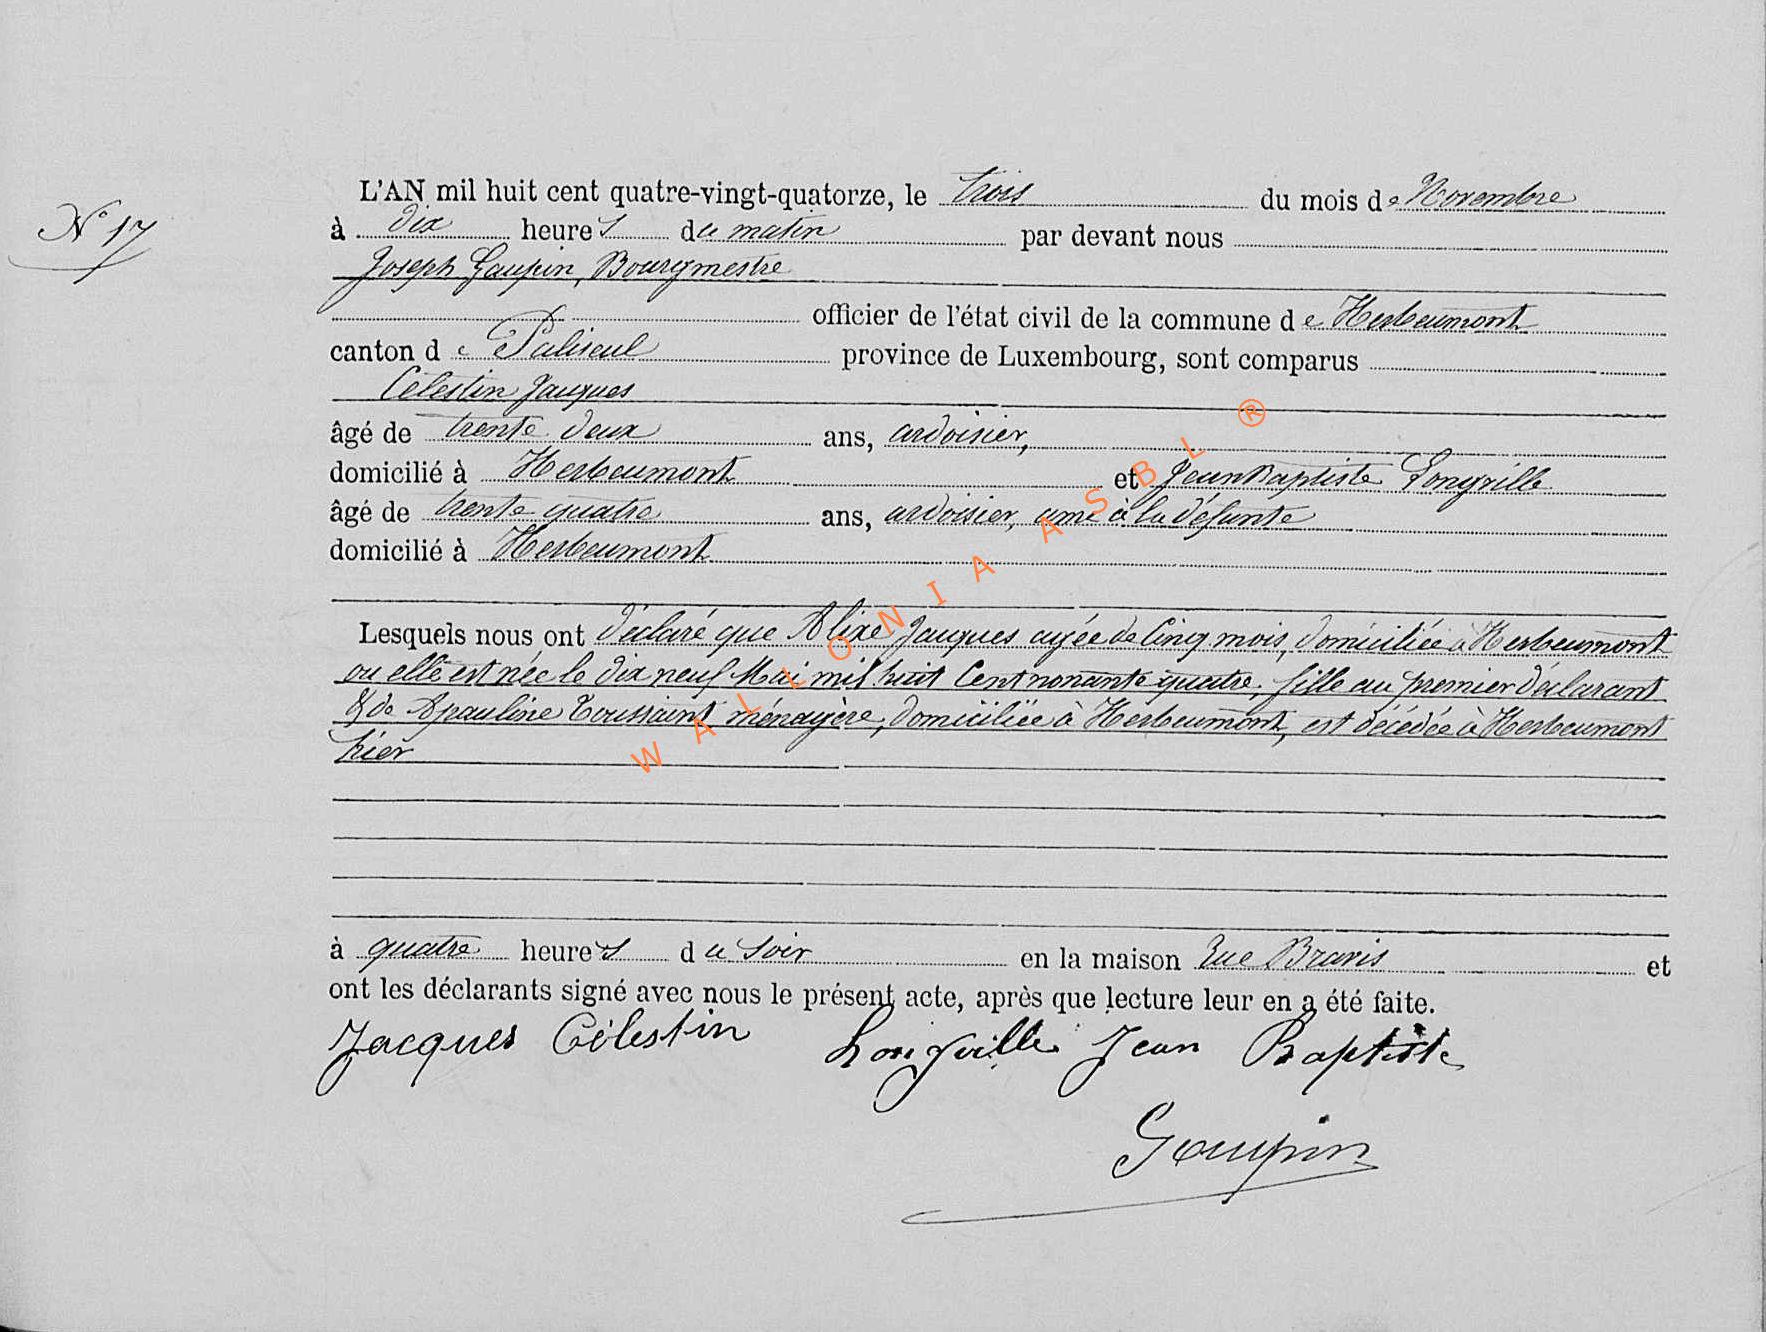 N° 17
L'AN mil huit cent quatre-vingt-quatorze, le trois du mois de Novembre
à dix heures du matin par devant nous
Joseph Goupin, Bourgmestre
officier de l'état civil de la commune de Herbeumont
canton de Paliseul province de Luxembourg, sont comparus
Célestin Jacques
âgé de trente deux ans, ardoisier,
domicilié à Herbeumont et Jean Baptiste Longville
âgé de trente quatre ans, ardoisier, ami à la défunte
domicilié à Herbeumont
Lesquels nous ont déclaré que Alixe Jacques agée de Cinq mois, domiciliée à Herbeumont
ou elle est née le dix neuf Mai mil huit Cent nonante quatre, fille au premier déclarant
& de Apauline Toussaint ménagère, domiciliée à Herbeumont, est décédée à Herbeumont
hier
à quatre heures du soir en la maison Rue Bravis et
ont les déclarants signé avec nous le présent acte, après que lecture leur en a été faite.
Jacques Célestin Longville Jean Baptiste
Goupin
WALLONIA ASBL ®